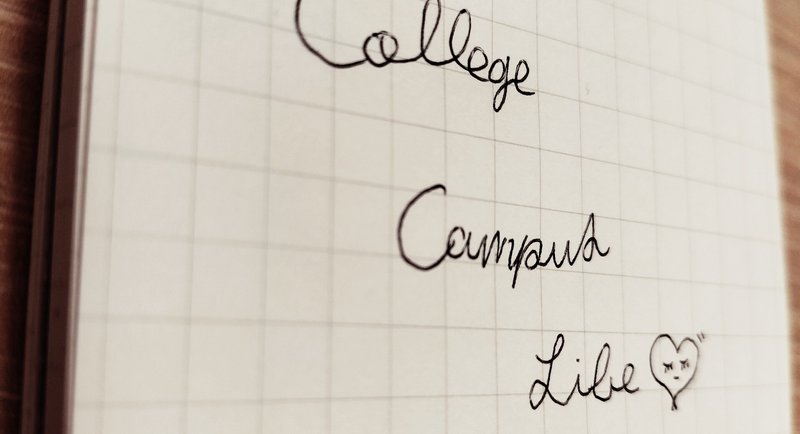 College
Campus
Life